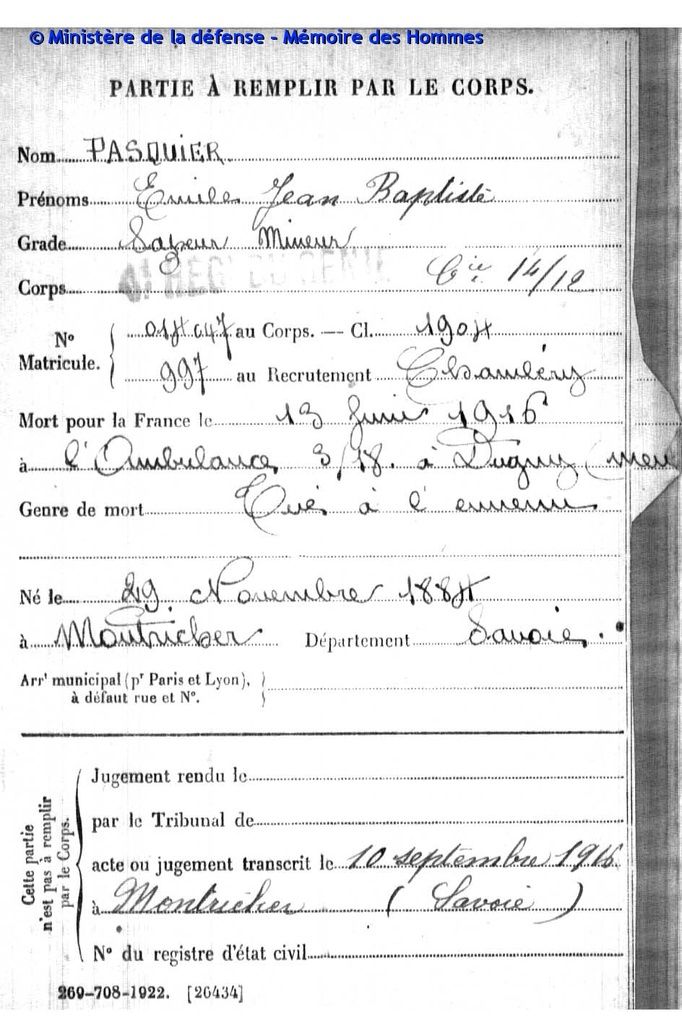 © Ministère de la défense - Mémoire des Hommes
PARTIE À REMPLIR PAR LE CORPS.
Nom PASQUIER
Prénoms Emile Jean Baptiste
Grade Sapeur Mineur
Corps 4e REGt DU GENIE Cie 14/12
No Matricule. { 018047 au Corps. — Cl. 1904
997 au Recrutement Chambéry
Mort pour la France le 13 Juin 1916
à l'Ambulance 3/18. à Dugny (Meu
Genre de mort Tué à l'ennemi
Né le 29 Novembre 1884
à Montricher Département Savoie.
Arrt municipal (pr Paris et Lyon), }
à défaut rue et No.
Cette partie n'est pas à remplir par le Corps.
Jugement rendu le
par le Tribunal de
acte ou jugement transcrit le 10 septembre 1916
à Montricher (Savoie)
No du registre d'état civil
269-708-1922. [26434]